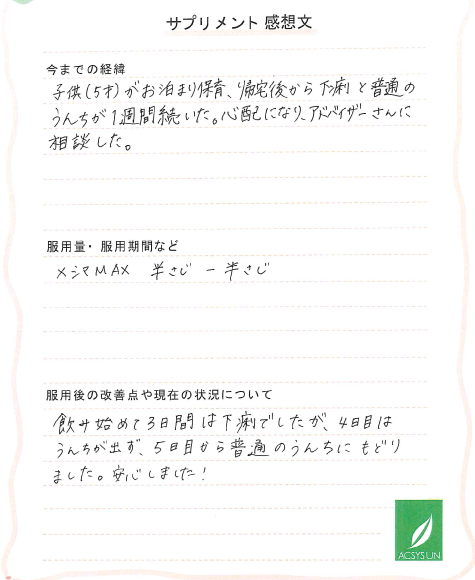 サプリメント 感想文
今までの経緯
子供(5才)がお泊まり保育、帰宅後から下痢と普通の
うんちが1週間続いた。心配になり、アドバイザーさんに
相談した。
服用量・服用期間など
メシマMAX 半さじ － 半さじ
服用後の改善点や現在の状況について
飲み始めて3日間は下痢でしたが、4日目は
うんちが出ず、5日目から普通のうんちにもどり
ました。安心しました!
ACSYSUN